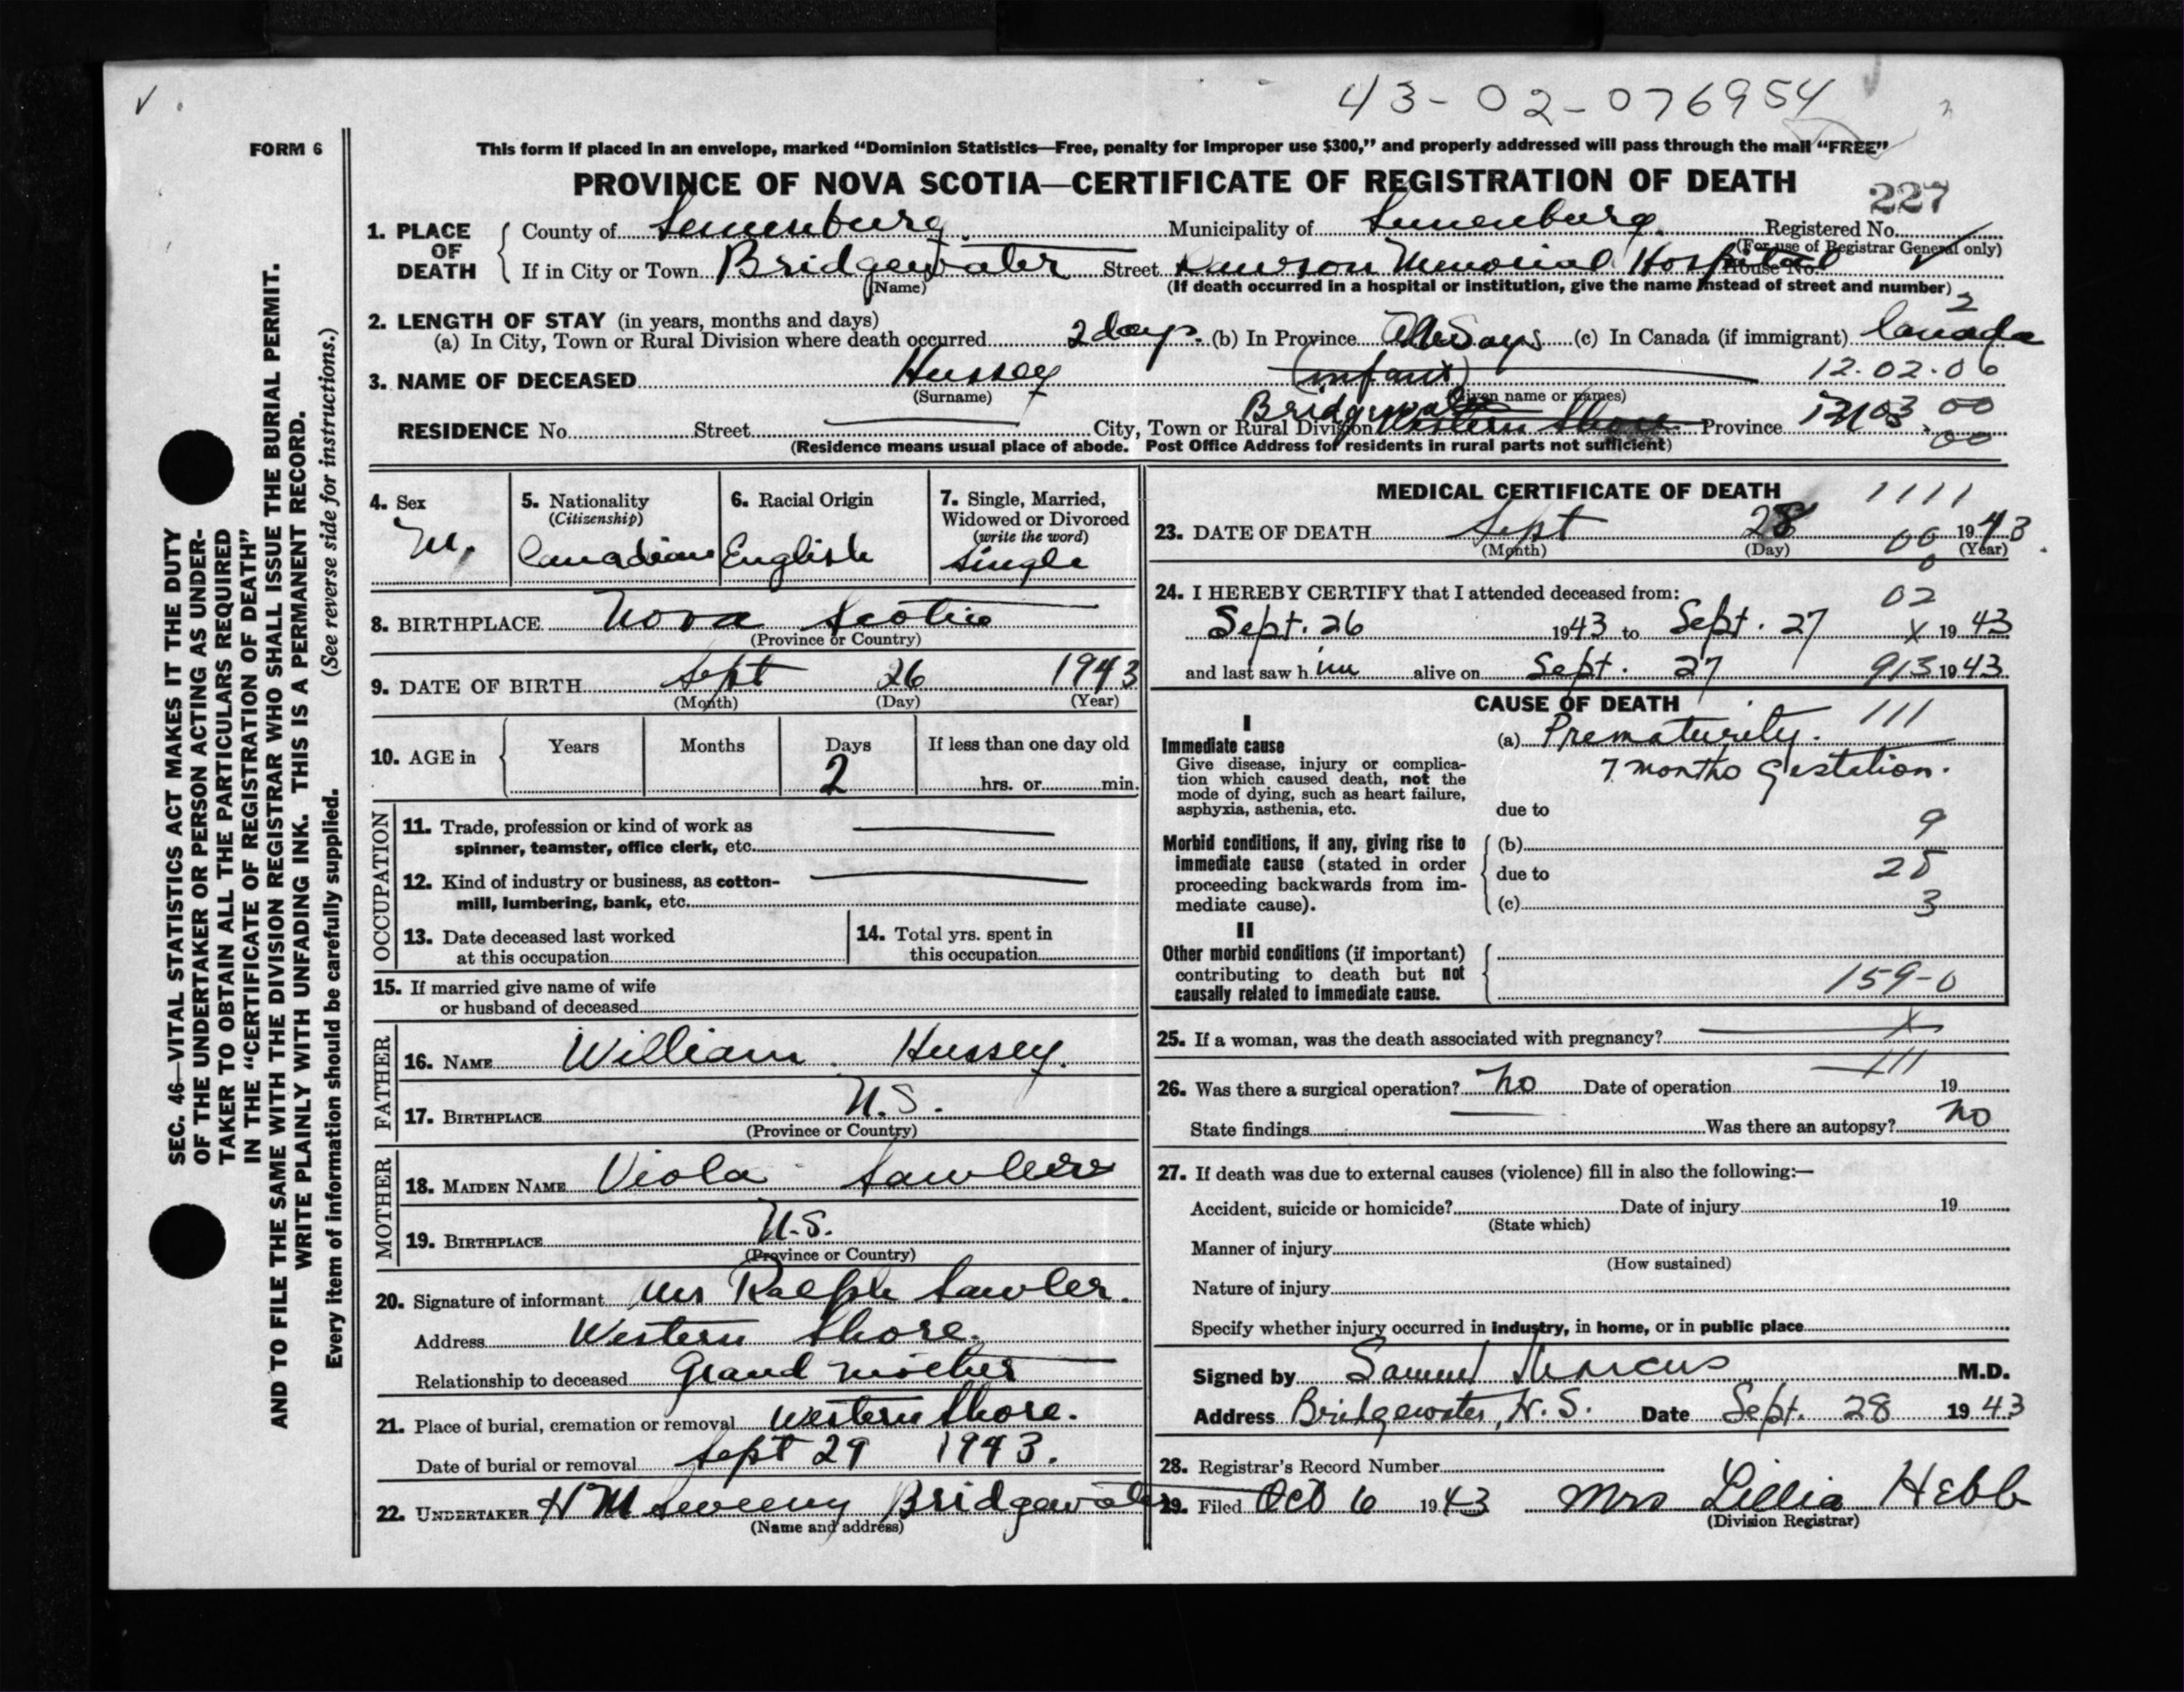 43-02-076954
FORM 6
This form if placed in an envelope, marked “Dominion Statistics—Free, penalty for improper use $300,” and properly addressed will pass through the mail “FREE”
PROVINCE OF NOVA SCOTIA—CERTIFICATE OF REGISTRATION OF DEATH
227
1. PLACE OF DEATH { County of Lunenburg Municipality of Lunenburg Registered No.
(For use of Registrar General only)
If in City or Town Bridgewater Street Dawson Memorial Hospital House No.
(Name) (If death occurred in a hospital or institution, give the name instead of street and number)
2. LENGTH OF STAY (in years, months and days) 2
(a) In City, Town or Rural Division where death occurred 2 days. (b) In Province Always (c) In Canada (if immigrant) Canada
3. NAME OF DECEASED Hussey (infant) 12.02.06
(Surname) (Given name or names)
Bridgewater
RESIDENCE No. Street City, Town or Rural Division Western Shore Province 12103.00
00
(Residence means usual place of abode. Post Office Address for residents in rural parts not sufficient)
4. Sex
M.
5. Nationality
(Citizenship)
Canadian
6. Racial Origin
English
7. Single, Married,
Widowed or Divorced
(write the word)
Single
8. BIRTHPLACE Nova Scotia
(Province or Country)
9. DATE OF BIRTH Sept 26 1943
(Month) (Day) (Year)
10. AGE in { Years Months Days If less than one day old
2 hrs. or min.
OCCUPATION
11. Trade, profession or kind of work as
spinner, teamster, office clerk, etc.
12. Kind of industry or business, as cotton-
mill, lumbering, bank, etc.
13. Date deceased last worked
at this occupation
14. Total yrs. spent in
this occupation
15. If married give name of wife
or husband of deceased
FATHER
16. NAME William Hussey.
17. BIRTHPLACE N.S.
(Province or Country)
MOTHER
18. MAIDEN NAME Viola Sawler
19. BIRTHPLACE N.S.
(Province or Country)
20. Signature of informant Mrs Ralph Sawler.
Address Western Shore.
Relationship to deceased Grand mother
21. Place of burial, cremation or removal Western Shore.
Date of burial or removal Sept 29 1943.
22. UNDERTAKER H M Sweeny Bridgewater
(Name and address)
MEDICAL CERTIFICATE OF DEATH 1111
23. DATE OF DEATH Sept 28 00 1943
(Month) (Day) (Year)
0
24. I HEREBY CERTIFY that I attended deceased from: 02
Sept. 26 1943 to Sept. 27 X 1943
and last saw him alive on Sept. 27 913 1943
CAUSE OF DEATH
111
I
Immediate cause
Give disease, injury or complica-
tion which caused death, not the
mode of dying, such as heart failure,
asphyxia, asthenia, etc.
(a) Prematurity.
7 months gestation.
due to
9
Morbid conditions, if any, giving rise to
immediate cause (stated in order
proceeding backwards from im-
mediate cause).
(b)
due to 25
(c) 3
II
Other morbid conditions (if important)
contributing to death but not
causally related to immediate cause.
159-0
25. If a woman, was the death associated with pregnancy? X
111
26. Was there a surgical operation? No Date of operation 19
State findings Was there an autopsy? No
27. If death was due to external causes (violence) fill in also the following:—
Accident, suicide or homicide? Date of injury 19
(State which)
Manner of injury
(How sustained)
Nature of injury
Specify whether injury occurred in industry, in home, or in public place
Signed by Samuel Marcus M.D.
Address Bridgewater, N.S. Date Sept. 28 1943
28. Registrar's Record Number
29. Filed Oct 6 1943 Mrs Lillia Hebb
(Division Registrar)
SEC. 46—VITAL STATISTICS ACT MAKES IT THE DUTY
OF THE UNDERTAKER OR PERSON ACTING AS UNDER-
TAKER TO OBTAIN ALL THE PARTICULARS REQUIRED
IN THE “CERTIFICATE OF REGISTRATION OF DEATH”
AND TO FILE THE SAME WITH THE DIVISION REGISTRAR WHO SHALL ISSUE THE BURIAL PERMIT.
WRITE PLAINLY WITH UNFADING INK. THIS IS A PERMANENT RECORD.
Every item of information should be carefully supplied. (See reverse side for instructions.)